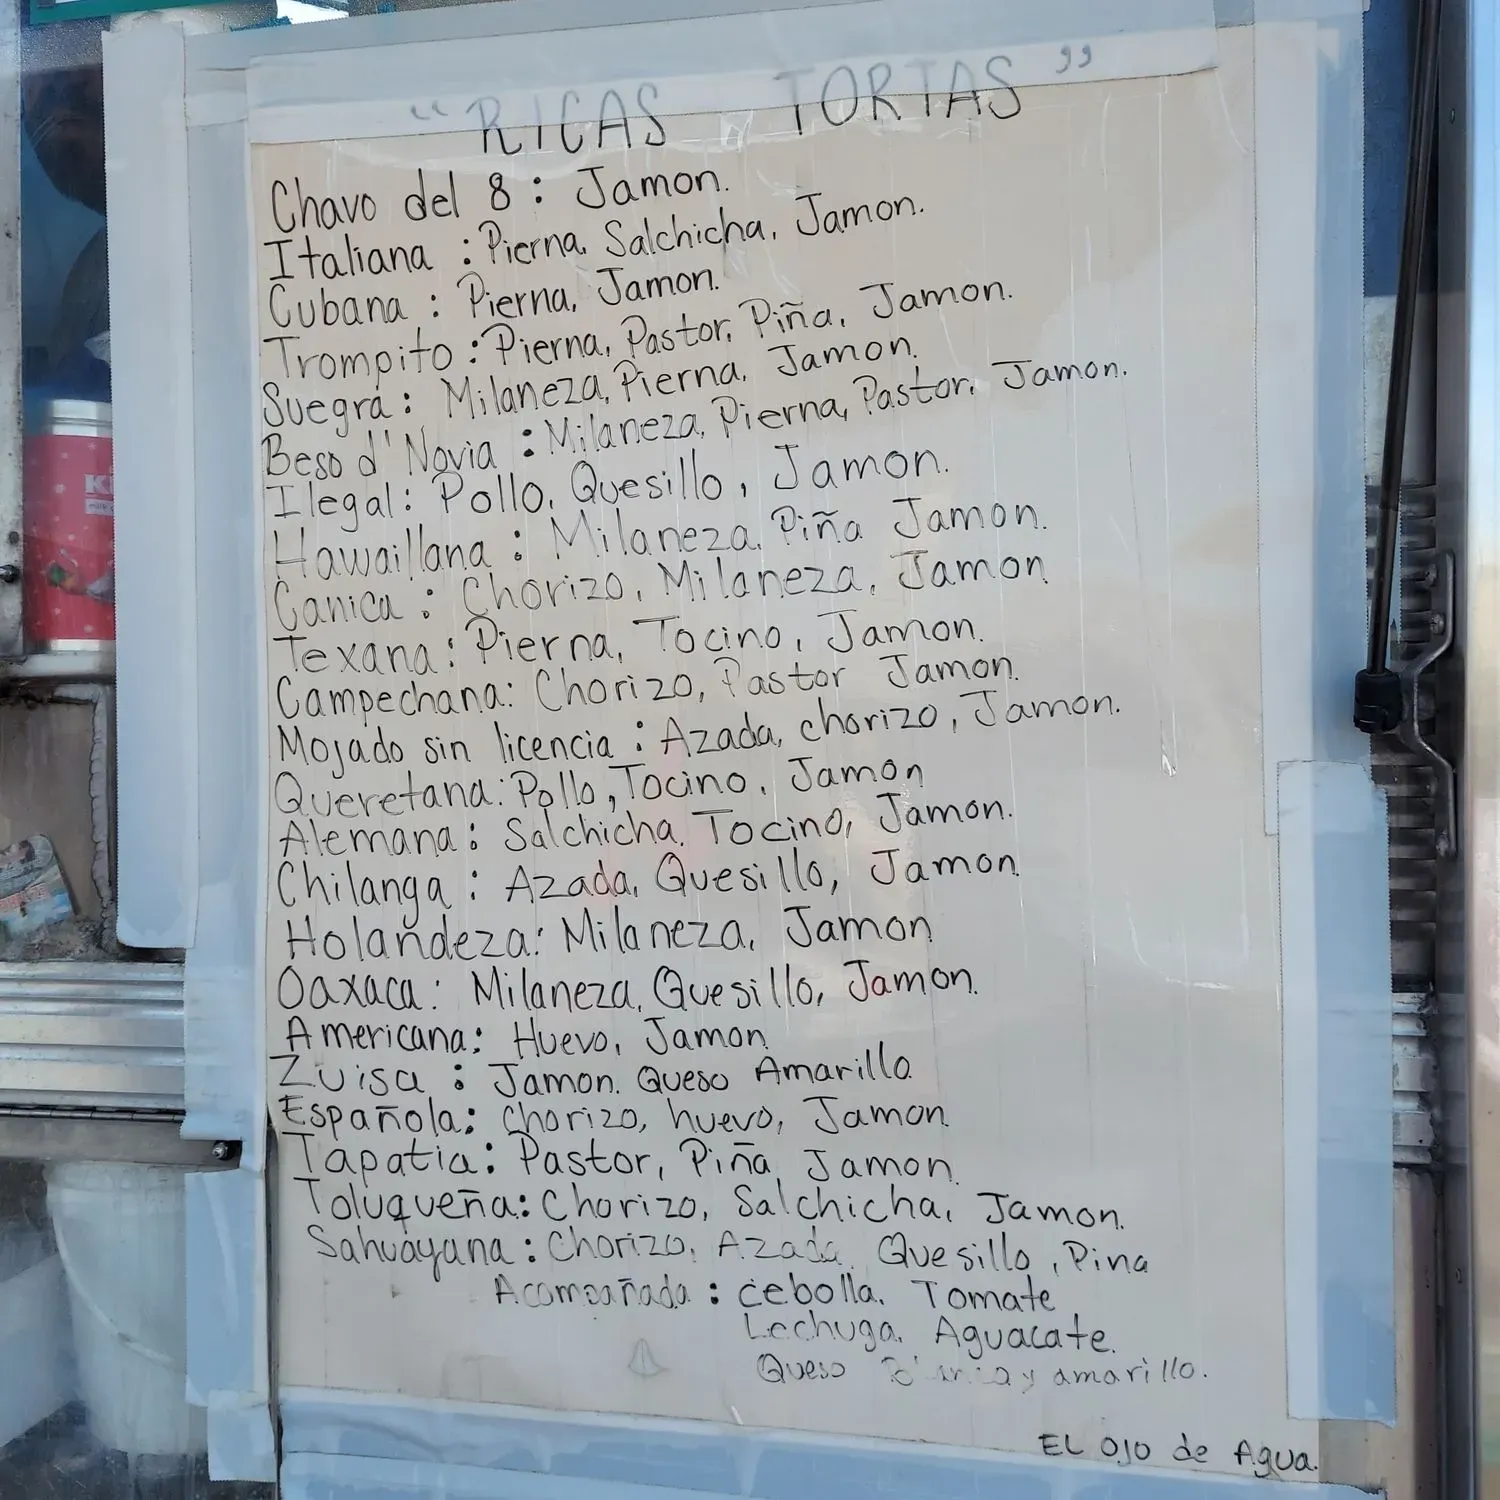 “RICAS TORTAS”
Chavo del 8: Jamon.
Italiana: Pierna, Salchicha, Jamon.
Cubana: Pierna, Jamon.
Trompito: Pierna, Pastor, Piña, Jamon.
Suegra: Milaneza, Pierna, Jamon.
Beso d' Novia: Milaneza, Pierna, Pastor, Jamon.
Ilegal: Pollo, Quesillo, Jamon.
Hawaillana: Milaneza, Piña Jamon.
Canica: Chorizo, Milaneza, Jamon
Texana: Pierna, Tocino, Jamon.
Campechana: Chorizo, Pastor Jamon.
Mojado sin licencia: Azada, chorizo, Jamon.
Queretana: Pollo, Tocino, Jamon
Alemana: Salchicha, Tocino, Jamon.
Chilanga: Azada, Quesillo, Jamon.
Holandeza: Milaneza, Jamon
Oaxaca: Milaneza, Quesillo, Jamon.
Americana: Huevo, Jamon
Zuisa: Jamon. Queso Amarillo.
Española: Chorizo, huevo, Jamon.
Tapatia: Pastor, Piña Jamon.
Toluqueña: Chorizo, Salchicha, Jamon.
Sahuayana: Chorizo, Azada, Quesillo, Pina
Acompañada: cebolla, Tomate
Lechuga, Aguacate.
Queso y amarillo.
EL OJO de Agua.